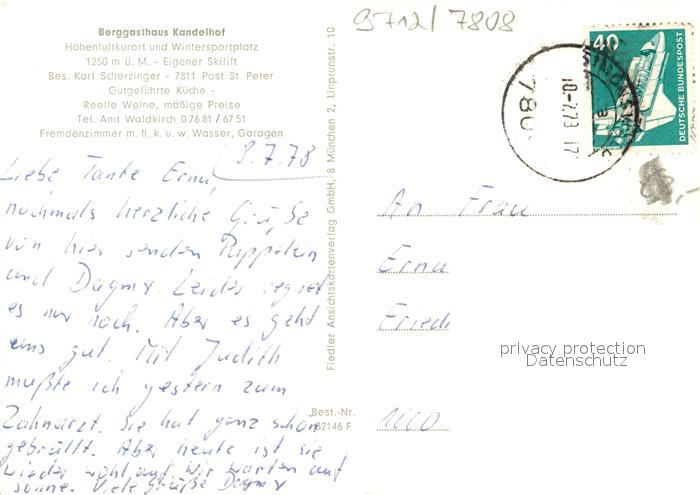 Berggasthaus Kandelhof
Höhenluftkurort und Wintersportplatz
1250 m ü. M. - Eigener Skilift
Bes. Karl Scherzinger - 7811 Post St. Peter
Gutgeführte Küche -
Reelle Weine, mäßige Preise
Tel. Amt Waldkirch 0 76 81 / 67 51
Fremdenzimmer m. fl. k. u. w. Wasser, Garagen
8.7.78
Liebe Tante Erna,
nochmals herzliche Grüße
von hier senden
und Dagmar. Leider regnet
es nur noch. Aber es geht
uns gut. Mit Judith
mußte ich gestern zum
Zahnarzt. Sie hat ganz schön
gebrüllt. Aber heute ist sie
wieder wohlauf. Wir warten auf
Sonne. Viele Grüße Dagmar
Fiedler Ansichtskartenverlag GmbH, 8 München 2, Linprunstr. 10
Best.-Nr.
62146 F
9712/7808
40
DEUTSCHE BUNDESPOST
780
An Frau
Erna
Fried
privacy protection
Datenschutz
1000